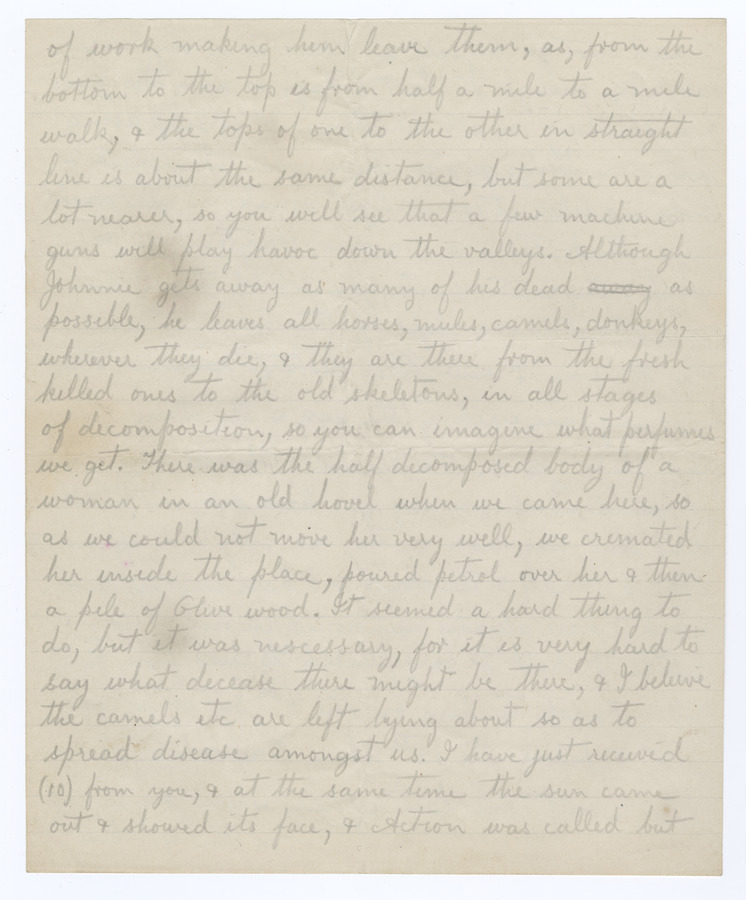 of work making him leave them, as, from the
bottom to the top is from half a mile to a mile
walk, & the tops of one to the other in straight
line is about the same distance, but some are a
lot nearer, so you will see that a few machine
guns will play havoc down the valleys. Although
Johnnie gets away as many of his dead away as
possible, he leaves all horses, mules, camels, donkeys,
wherever they die, & they are there from the fresh
killed ones to the old skeletons, in all stages
of decomposition, so you can imagine what perfumes
we get. There was the half decomposed body of a
woman in an old hovel when we came here, so
as we could not move her very well, we cremated
her inside the place, poured petrol over her & then
a pile of Olive wood. It seemed a hard thing to
do, but it was nescessary, for it is very hard to
say what decease there might be there, & I believe
the camels etc are left lying about so as to
spread disease amongst us. I have just received
(10) from you, & at the same time the sun came
out & showed its face, & Action was called but